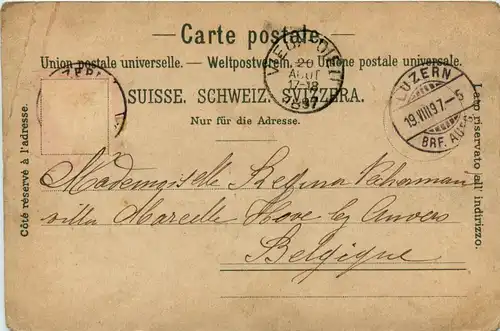 Carte postale.
Union postale universelle. – Weltpostverein. – Unione postale universale.
SUISSE. SCHWEIZ. SVIZZERA.
Nur für die Adresse.
Côté réservé à l'adresse.
Lato riservato all' indirizzo.
20
AOUT
17-18
1897
LUZERN
19.VIII.97.-5
BRF. AUFG.
Mademoiselle Regina
villa Marcelle Hove by Anvers
Belgique